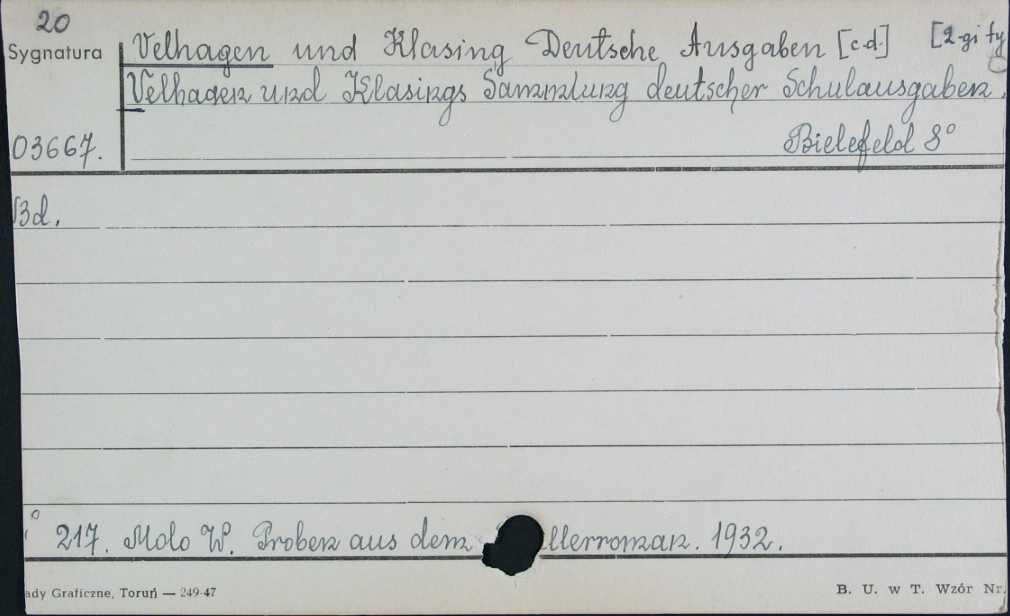 20
Sygnatura
Velhagen und Klasing Deutsche Ausgaben [c.d.] [2-gi ty
Velhagen und Klasings Sammlung deutscher Schulausgaben.
03667. Bielefeld 8°
Bd.
217. Molo W. Proben aus dem llerroman. 1932.
ady Graficzne, Toruń — 249-47
B. U. w T. Wzór Nr.